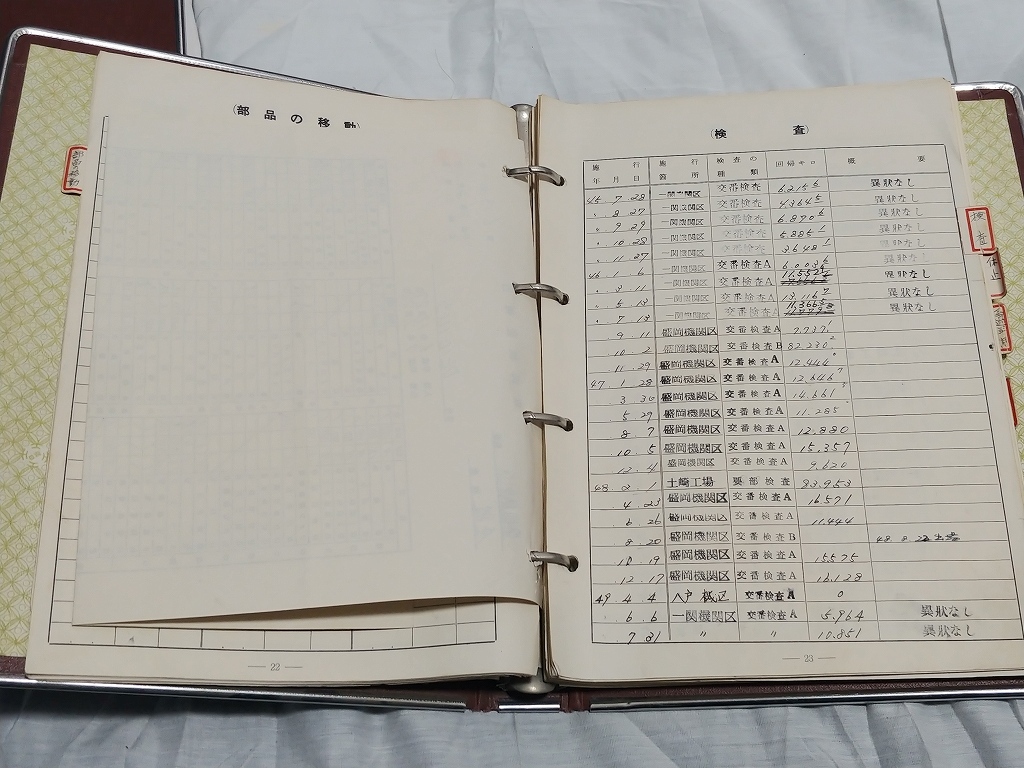 (部品の移動)
部品移動
22
(検査)
施行年月日 施行箇所 検査の種類 回帰キロ 概要
45 7 28 一関機関区 交番検査 6215⁶ 異状なし
〃 8 27 一関機関区 交番検査 4364⁵ 異状なし
〃 9 29 一関機関区 交番検査 6890⁶ 異状なし
〃 10 28 一関機関区 交番検査 5885¹ 異状なし
〃 11 27 一関機関区 交番検査 3648¹ 異状なし
46 1 6 一関機関区 交番検査A 6003⁶ 異状なし
〃 3 11 一関機関区 交番検査A 11,552 異状なし
〃 5 13 一関機関区 交番検査A 13,116² 異状なし
〃 7 13 一関機関区 交番検査A 11,366 異状なし
9 11 盛岡機関区 交番検査A 7,737¹
10 2 盛岡機関区 交番検査B 82,230²
11 29 盛岡機関区 交番検査A 12,446
47 1 28 盛岡機関区 交番検査A 12,646⁷
3 30 盛岡機関区 交番検査A 14,661
5 29 盛岡機関区 交番検査A 11,285
8 7 盛岡機関区 交番検査A 12,880
10 5 盛岡機関区 交番検査A 15,357
12 4 盛岡機関区 交番検査A 9,620
48 2 1 土崎工場 要部検査 83,953
4 23 盛岡機関区 交番検査A 16,571
6 26 盛岡機関区 交番検査A 11,444
8 20 盛岡機関区 交番検査B 48 8 22
10 19 盛岡機関区 交番検査A 15,575
12 17 盛岡機関区 交番検査A 16,128
49 4 4 八戸機区 交番検査A 0
6 6 一関機関区 交番検査A 5,964 異状なし
7 31 〃 〃 10,851 異状なし
23
検査
休止